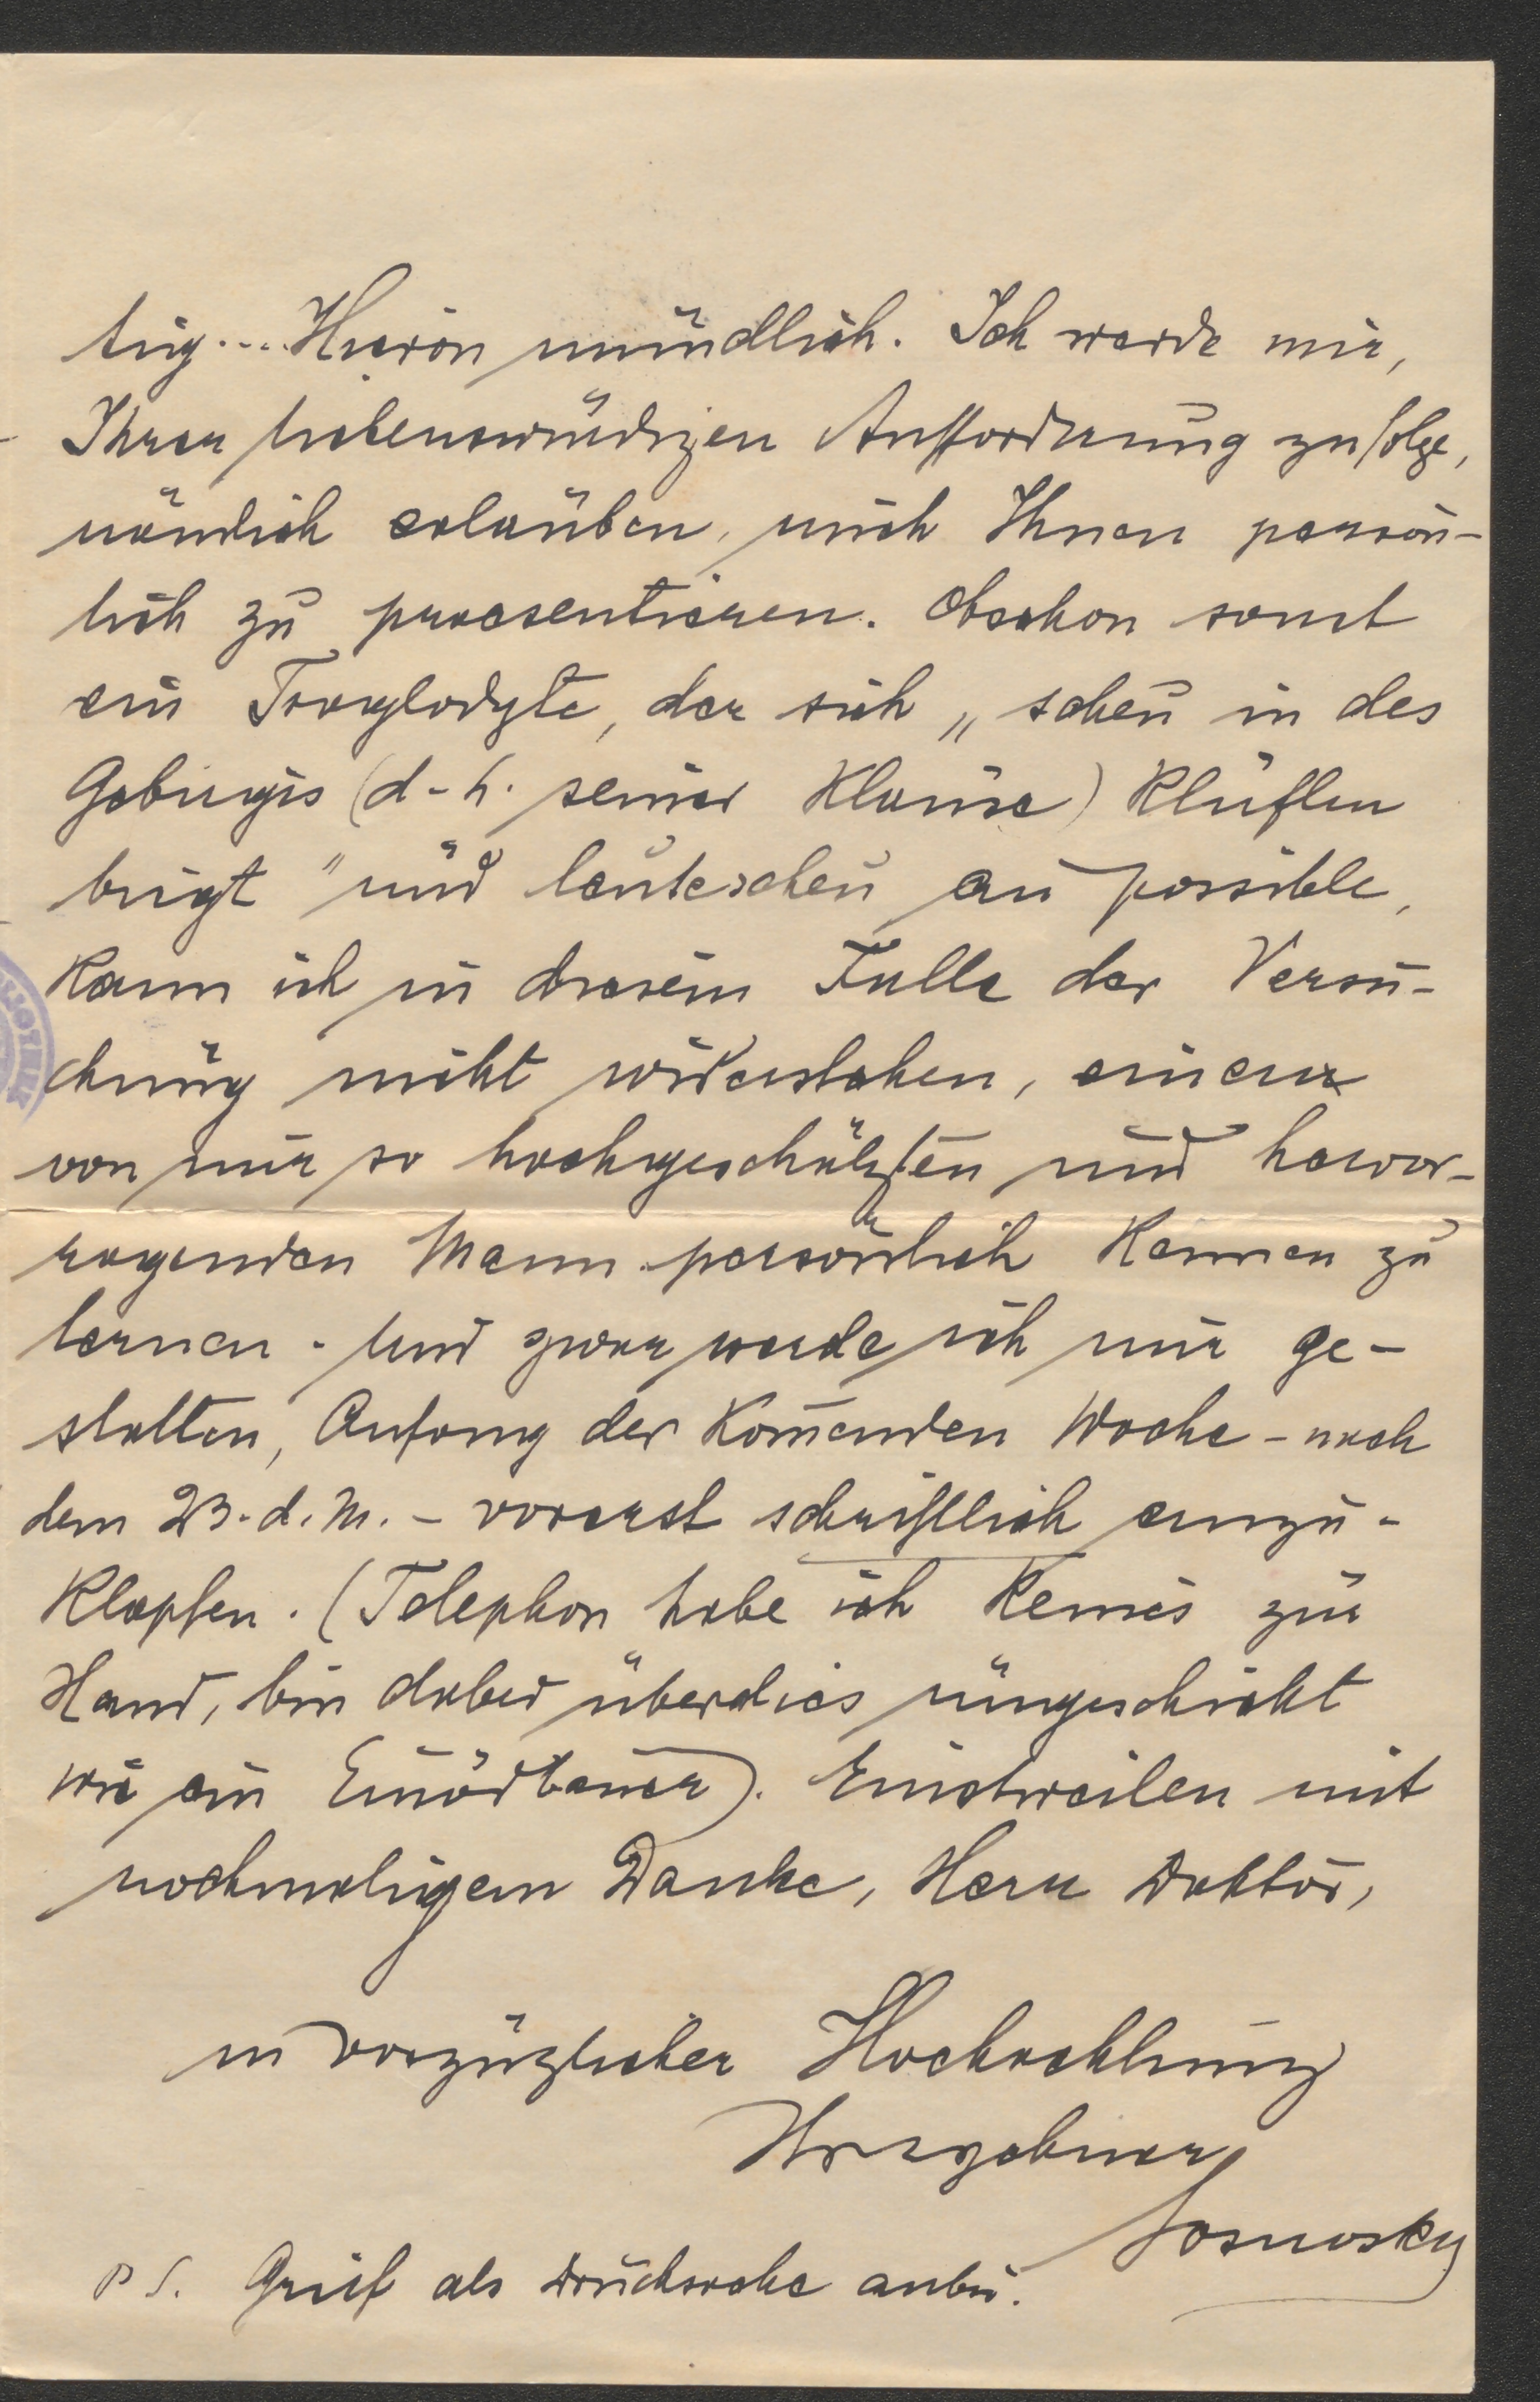 tig... Hievon mündlich. Ich werde mir,
Ihrer liebenswürdigen Aufforderung zufolge,
nämlich erlauben, mich Ihnen persön-
lich zu praesentieren. Obschon sonst
ein Troglodyte, der sich „scheu in des
Gebirgis (d-h. seiner Klause) Klüften
birgt" und leutescheu au possible,
kann ich in diesem Falle der Versu-
chung nicht widerstehen, einen
von mir so hochgeschätzten und hervor-
ragenden Mann persönlich kennen zu
lernen. Und zwar werde ich mir ge-
statten, Anfang der kom̄enden Woche - nach
dem 23. d. M. - vorerst schriftlich anzu-
klopfen. (Telephon habe ich keines zur
Hand, bin dabei überdies ungeschickt
wie ein Einödbauer). Einstweilen mit
nochmaligem Danke, Herr Doktor,
in vorzüglicher Hochachtung
Ihr ergebener
Sosnosky
PS. Greif als Drucksache anbei.